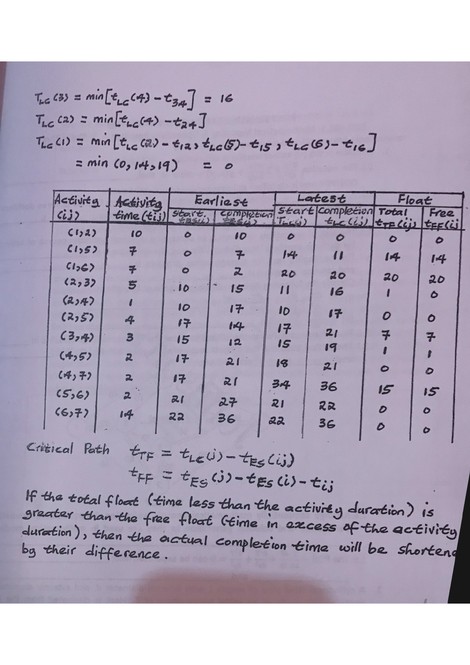 TLC(3) = min[tLC(4) - t34] = 16
TLC(2) = min[tLC(4) - t24]
TLC(1) = min[tLC(2) - t12, tLC(5) - t15, tLC(6) - t16]
= min (0, 14, 19) = 0
Activity (ij) Activity time (tij) Earliest Latest Float
Start completion Start Completion Total Free
TLC(i) tLC(ij) tTF(ij) tFF(ij)
(1,2) 10 0 10 0 0 0 0
(1,5) 7 0 7 14 11 14 14
(1,6) 7 0 2 20 20 20 20
(2,3) 5 10 15 11 16 1 0
(2,4) 1 10 17 10 17 0 0
(2,5) 4 17 14 17 21 7 7
(3,4) 3 15 12 15 19 1 1
(4,5) 2 17 21 18 21 0 0
(4,7) 2 17 21 34 36 15 15
(5,6) 2 21 27 21 22 0 0
(6,7) 14 22 36 22 36 0 0
Critical Path tTF = tLC(j) - tES(ij)
tFF = tES(j) - tES(i) - tij
If the total float (time less than the activity duration) is
greater than the free float (time in excess of the activity
duration), then the actual completion time will be shortene
by their difference.